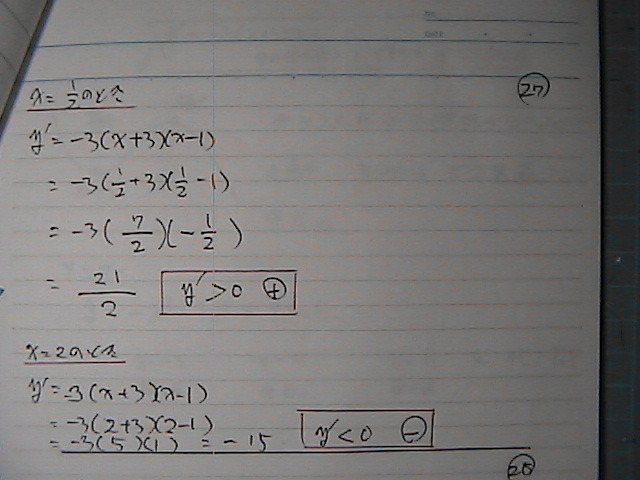 NO.
DATE
㉗
x = 1/2 のとき
y' = -3(x+3)(x-1)
= -3(1/2+3)(1/2-1)
= -3(7/2)(-1/2)
= 21/2 y'>0 ⊕
x=2のとき
y' = -3(x+3)(x-1)
= -3(2+3)(2-1)
= -3(5)(1) = -15 y'<0 ⊖